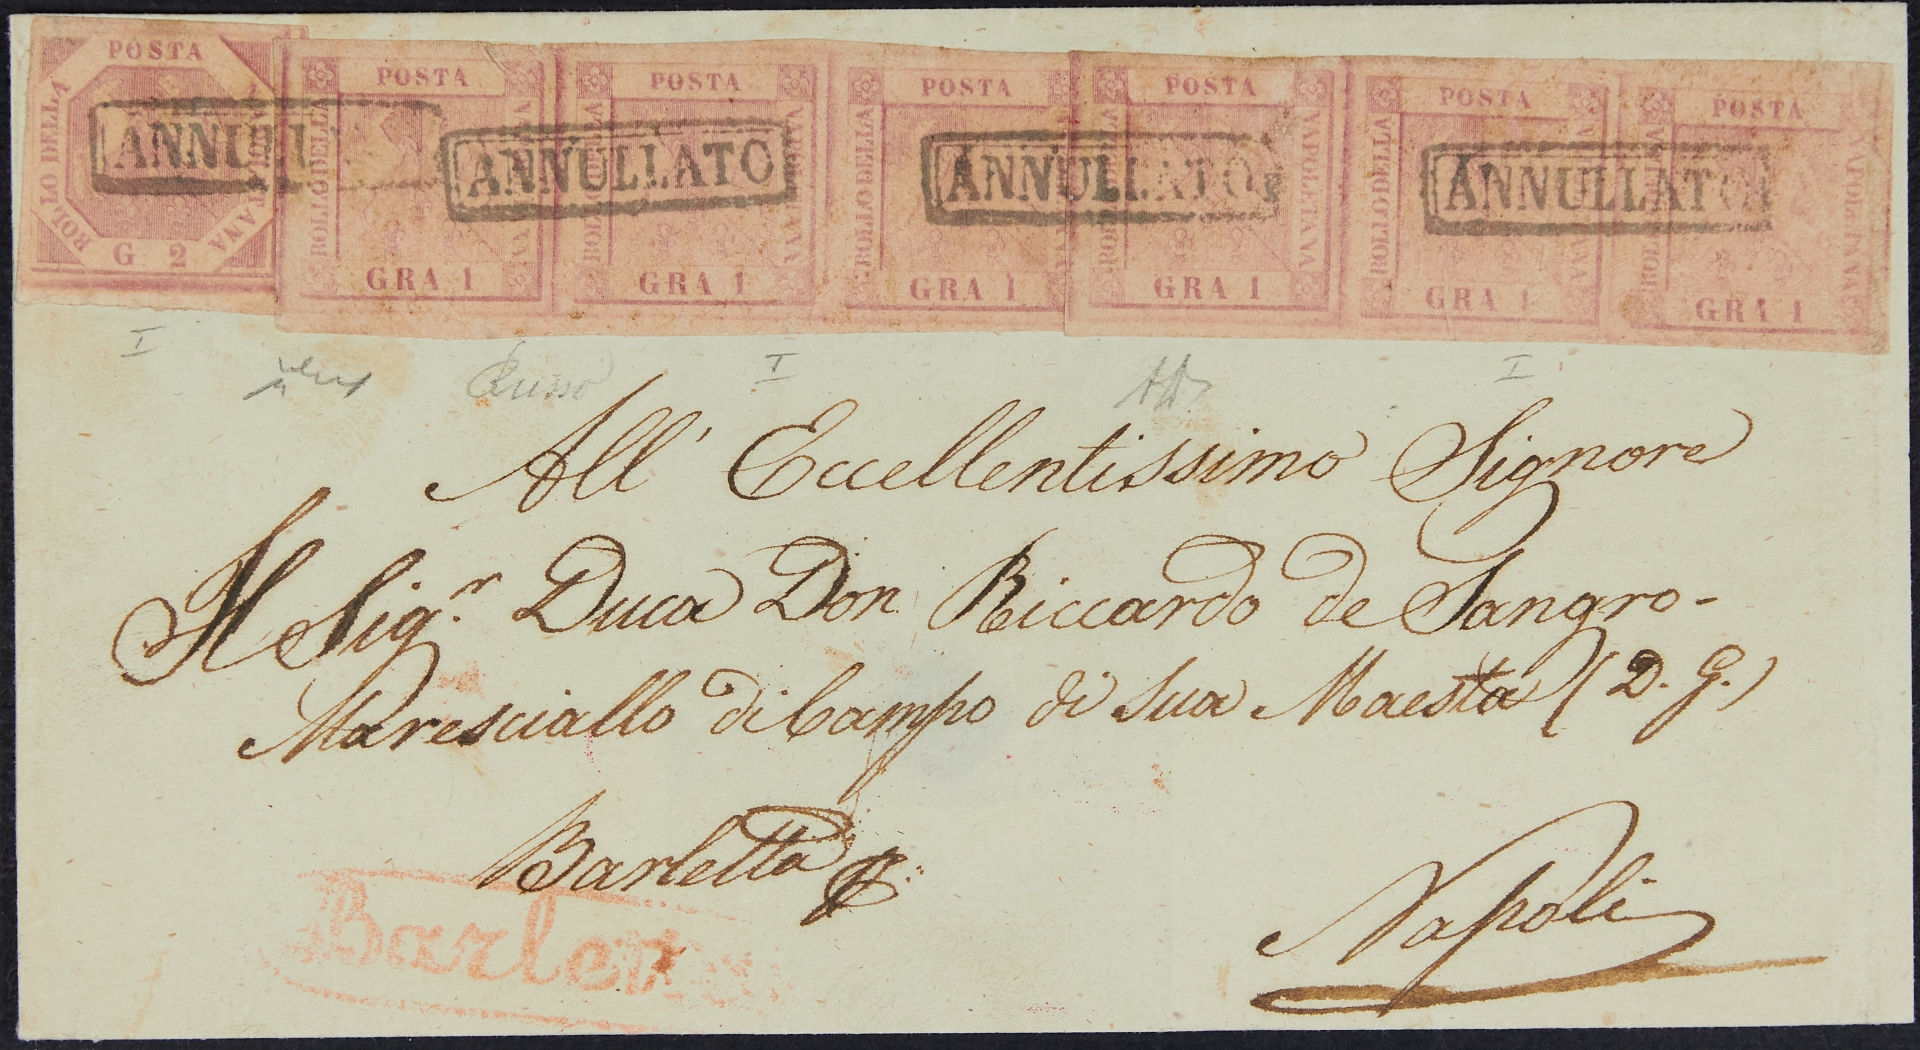 POSTA POSTA POSTA POSTA POSTA POSTA POSTA
BOLLO DELLA BOLLO DELLA BOLLO DELLA BOLLO DELLA BOLLO DELLA BOLLO DELLA
NAPOLETANA NAPOLETANA
ANNULL ANNULLATO ANNULLATO ANNULLATO
G 2 GRA 1 GRA 1 GRA 1 GRA 1 GRA 1 GRA 1
I I I
All' Eccellentissimo Signore
Il Sig.r Duca Don Riccardo de Sangro-
Maresciallo di Campo di Sua Maestà (D. G.)
Barletta
Napoli
Barlet